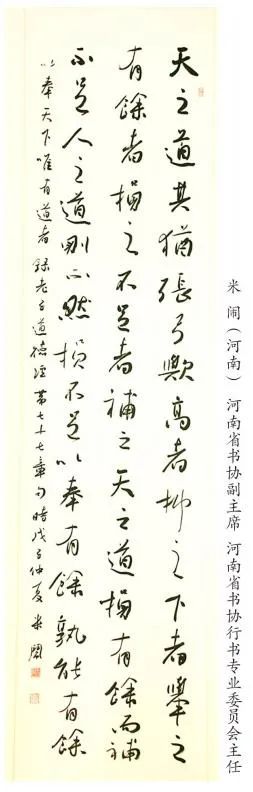 米闹（河南） 河南省书协副主席 河南省书协行书专业委员会主任
天之道其猶張弓歟高者抑之下者舉之
有餘者損之不足者補之天之道損有餘而補
不足人之道則不然損不足以奉有餘孰能有餘
以奉天下唯有道者 錄老子道德經第七十七章句 時戊子仲夏 米闹